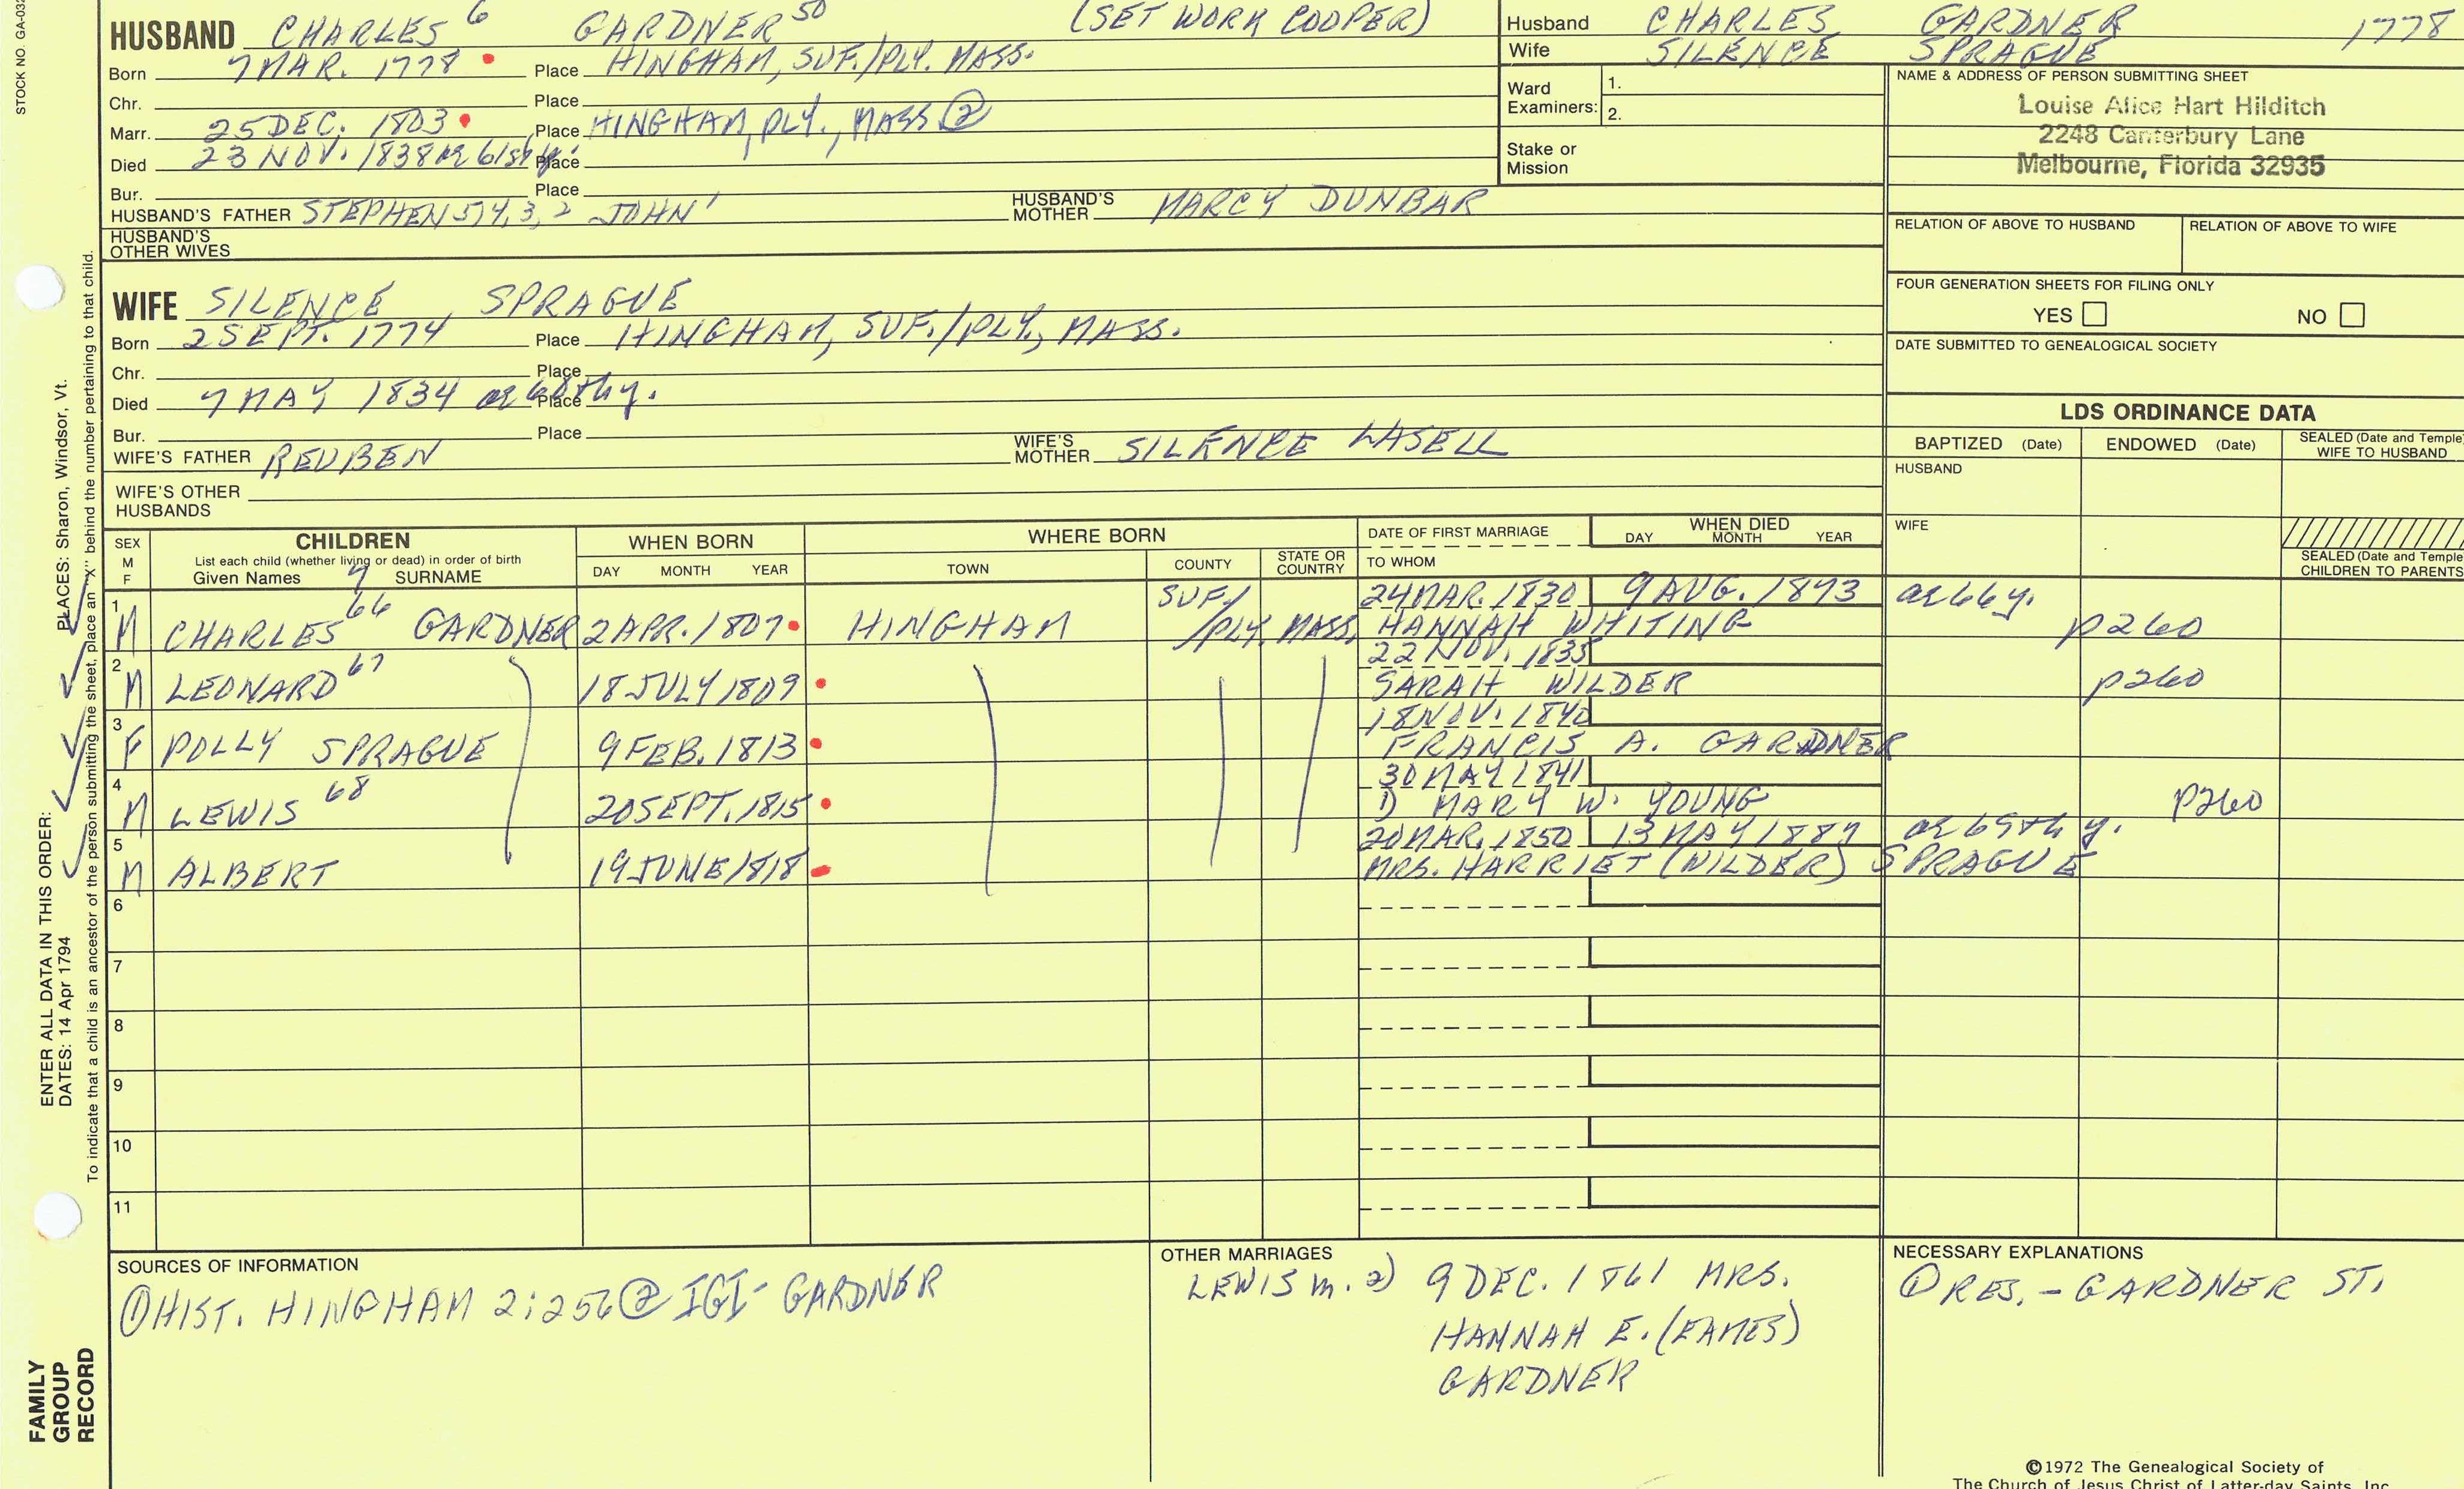 STOCK NO. GA-032
HUSBAND CHARLES 6 GARDNER 50 (SET WORK COOPER)
Born 7 MAR. 1778 Place HINGHAM, SUF./PLY. MASS.
Chr. Place
Marr. 25 DEC. 1803 Place HINGHAM, PLY., MASS ②
Died 23 NOV. 1838 ae 61st y. Place
Bur. Place
HUSBAND'S FATHER STEPHEN 5,4,3,2 JOHN 1 HUSBAND'S MOTHER MARCY DUNBAR
HUSBAND'S OTHER WIVES
WIFE SILENCE SPRAGUE
Born 2 SEPT. 1774 Place HINGHAM, SUF./PLY., MASS.
Chr. Place
Died 7 MAY 1834 ae 60th y. Place
Bur. Place
WIFE'S FATHER REUBEN WIFE'S MOTHER SILENCE LASELL
WIFE'S OTHER HUSBANDS
Husband CHARLES GARDNER 1778
Wife SILENCE SPRAGUE
Ward Examiners: 1.
2.
Stake or Mission
NAME & ADDRESS OF PERSON SUBMITTING SHEET
Louise Alice Hart Hilditch
2248 Canterbury Lane
Melbourne, Florida 32935
RELATION OF ABOVE TO HUSBAND RELATION OF ABOVE TO WIFE
FOUR GENERATION SHEETS FOR FILING ONLY
YES NO
DATE SUBMITTED TO GENEALOGICAL SOCIETY
LDS ORDINANCE DATA
BAPTIZED (Date) ENDOWED (Date) SEALED (Date and Temple) WIFE TO HUSBAND
HUSBAND
WIFE
SEALED (Date and Temple) CHILDREN TO PARENTS
SEX M F CHILDREN WHEN BORN WHERE BORN DATE OF FIRST MARRIAGE WHEN DIED
List each child (whether living or dead) in order of birth
Given Names 7 SURNAME DAY MONTH YEAR TOWN COUNTY STATE OR COUNTRY TO WHOM DAY MONTH YEAR
1 M CHARLES 66 GARDNER 2 APR. 1807 HINGHAM SUF./PLY. MASS. 24 MAR. 1830 9 AUG. 1873 ae 66 y.
HANNAH WHITING p260
2 M LEONARD 67 18 JULY 1809 22 NOV. 1835
SARAH WILDER p260
3 F POLLY SPRAGUE 9 FEB. 1813 18 NOV. 1840
FRANCIS A. GARDNER
4 M LEWIS 68 20 SEPT. 1815 30 MAY 1841
1) MARY W. YOUNG p260
5 M ALBERT 19 JUNE 1818 20 MAR. 1850 13 MAY 1887 ae 69th y.
MRS. HARRIET (WILDER) SPRAGUE
6
7
8
9
10
11
SOURCES OF INFORMATION
① HIST. HINGHAM 2:256 ② IGI- GARDNER
OTHER MARRIAGES
LEWIS m. 2) 9 DEC. 1861 MRS.
HANNAH E. (EAMES)
GARDNER
NECESSARY EXPLANATIONS
① RES. - GARDNER ST.
©1972 The Genealogical Society of
The Church of Jesus Christ of Latter-day Saints, Inc.
ENTER ALL DATA IN THIS ORDER: PLACES: Sharon, Windsor, Vt.
DATES: 14 Apr 1794
To indicate that a child is an ancestor of the person submitting the sheet, place an "X" behind the number pertaining to that child.
FAMILY
GROUP
RECORD